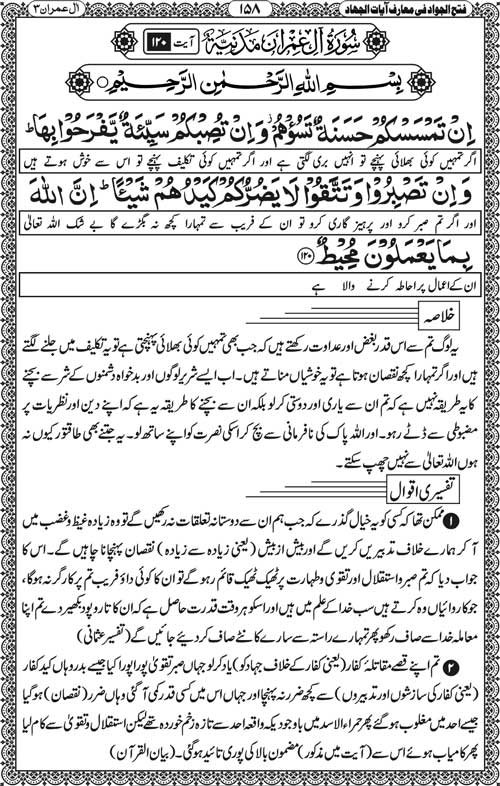 فتح الجوّاد فی معارف آیات الجہاد
۱۵۸
آل عمران ۳
سُوْرَۃُ اٰلِ عِمْرَان مَدَنِیَّۃٌ آیت ۱۲۰
بِسْمِ اللهِ الرَّحْمٰنِ الرَّحِيْمِ
اِنْ تَمْسَسْكُمْ حَسَنَةٌ تَسُؤْهُمْ وَاِنْ تُصِبْكُمْ سَيِّئَةٌ يَّفْرَحُوْا بِهَا ط
اگر تمہیں کوئی بھلائی پہنچے تو انہیں بری لگتی ہے اور اگر تمہیں کوئی تکلیف پہنچے تو اس سے خوش ہوتے ہیں
وَاِنْ تَصْبِرُوْا وَتَتَّقُوْا لَا يَضُرُّكُمْ كَيْدُهُمْ شَيْئًا ط اِنَّ اللهَ
اور اگر تم صبر کرو اور پرہیز گاری کرو تو ان کے فریب سے تمہارا کچھ نہ بگڑے گا بے شک اللہ تعالیٰ
بِمَا يَعْمَلُوْنَ مُحِيْطٌ ۱۲۰
ان کے اعمال پر احاطہ کرنے والا ہے
خلاصہ
یہ لوگ تم سے اس قدر بغض اور عداوت رکھتے ہیں کہ جب بھی تمہیں کوئی بھلائی پہنچتی ہے تو یہ تکلیف میں جلنے لگتے
ہیں اور اگر تمہارا کچھ نقصان ہوتا ہے تو یہ خوشیاں مناتے ہیں۔ اب ایسے شریر لوگوں اور بدخواہ دشمنوں کے شر سے بچنے
کا یہ طریقہ نہیں ہے کہ تم ان سے یاری اور دوستی کرلو بلکہ ان سے بچنے کا طریقہ یہ ہے کہ اپنے دین اور نظریات پر
مضبوطی سے ڈٹے رہو۔ اور اللہ پاک کی نافرمانی سے بچ کر اسکی نصرت کو اپنے ساتھ لو۔ یہ جتنے بھی طاقتور کیوں نہ
ہوں اللہ تعالیٰ سے نہیں چھپ سکتے۔
تفسیری اقوال
۱ ممکن تھا کہ کسی کو یہ خیال گذرے کہ جب ہم ان سے دوستانہ تعلقات نہ رکھیں گے تو وہ زیادہ غیظ و غضب میں
آکر ہمارے خلاف تدبیریں کریں گے اور بیش از بیش (یعنی زیادہ سے زیادہ) نقصان پہنچانا چاہیں گے۔ اس کا
جواب دیا کہ تم صبر و استقلال اور تقویٰ و طہارت پر ٹھیک ٹھیک قائم رہو گے تو ان کا کوئی داؤ فریب تم پر کارگر نہ ہوگا،
جو کاروائیاں وہ کرتے ہیں سب خدا کے علم میں ہیں اور اسکو ہر وقت قدرت حاصل ہے کہ ان کا تارو پود بکھیر دے تم اپنا
معاملہ خدا سے صاف رکھو پھر تمہارے راستہ سے سارے کانٹے صاف کر دیئے جائیں گے (تفسیر عثمانی)
۲ تم اپنے قصے مقاتلۂ کفار (یعنی کفار کے خلاف جہاد کو) یاد کرلو جہاں صبر تقویٰ پورا پورا کیا جیسے بدر وہاں کید کفار
(یعنی کفار کی سازشوں اور تدبیروں) سے کچھ ضرر نہ پہنچا اور جہاں اس میں کسی قدر کمی آگئی وہاں ضرر (نقصان) ہو گیا
جیسے احد میں مغلوب ہو گئے پھر حمراء الاسد میں باوجود یکہ واقعہ احد سے تازہ زخم خوردہ تھے لیکن استقلال و تقویٰ سے کام لیا
پھر کامیاب ہوئے اس سے (آیت میں مذکور) مضمون بالا کی پوری تائید ہوگئی۔ (بیان القرآن)